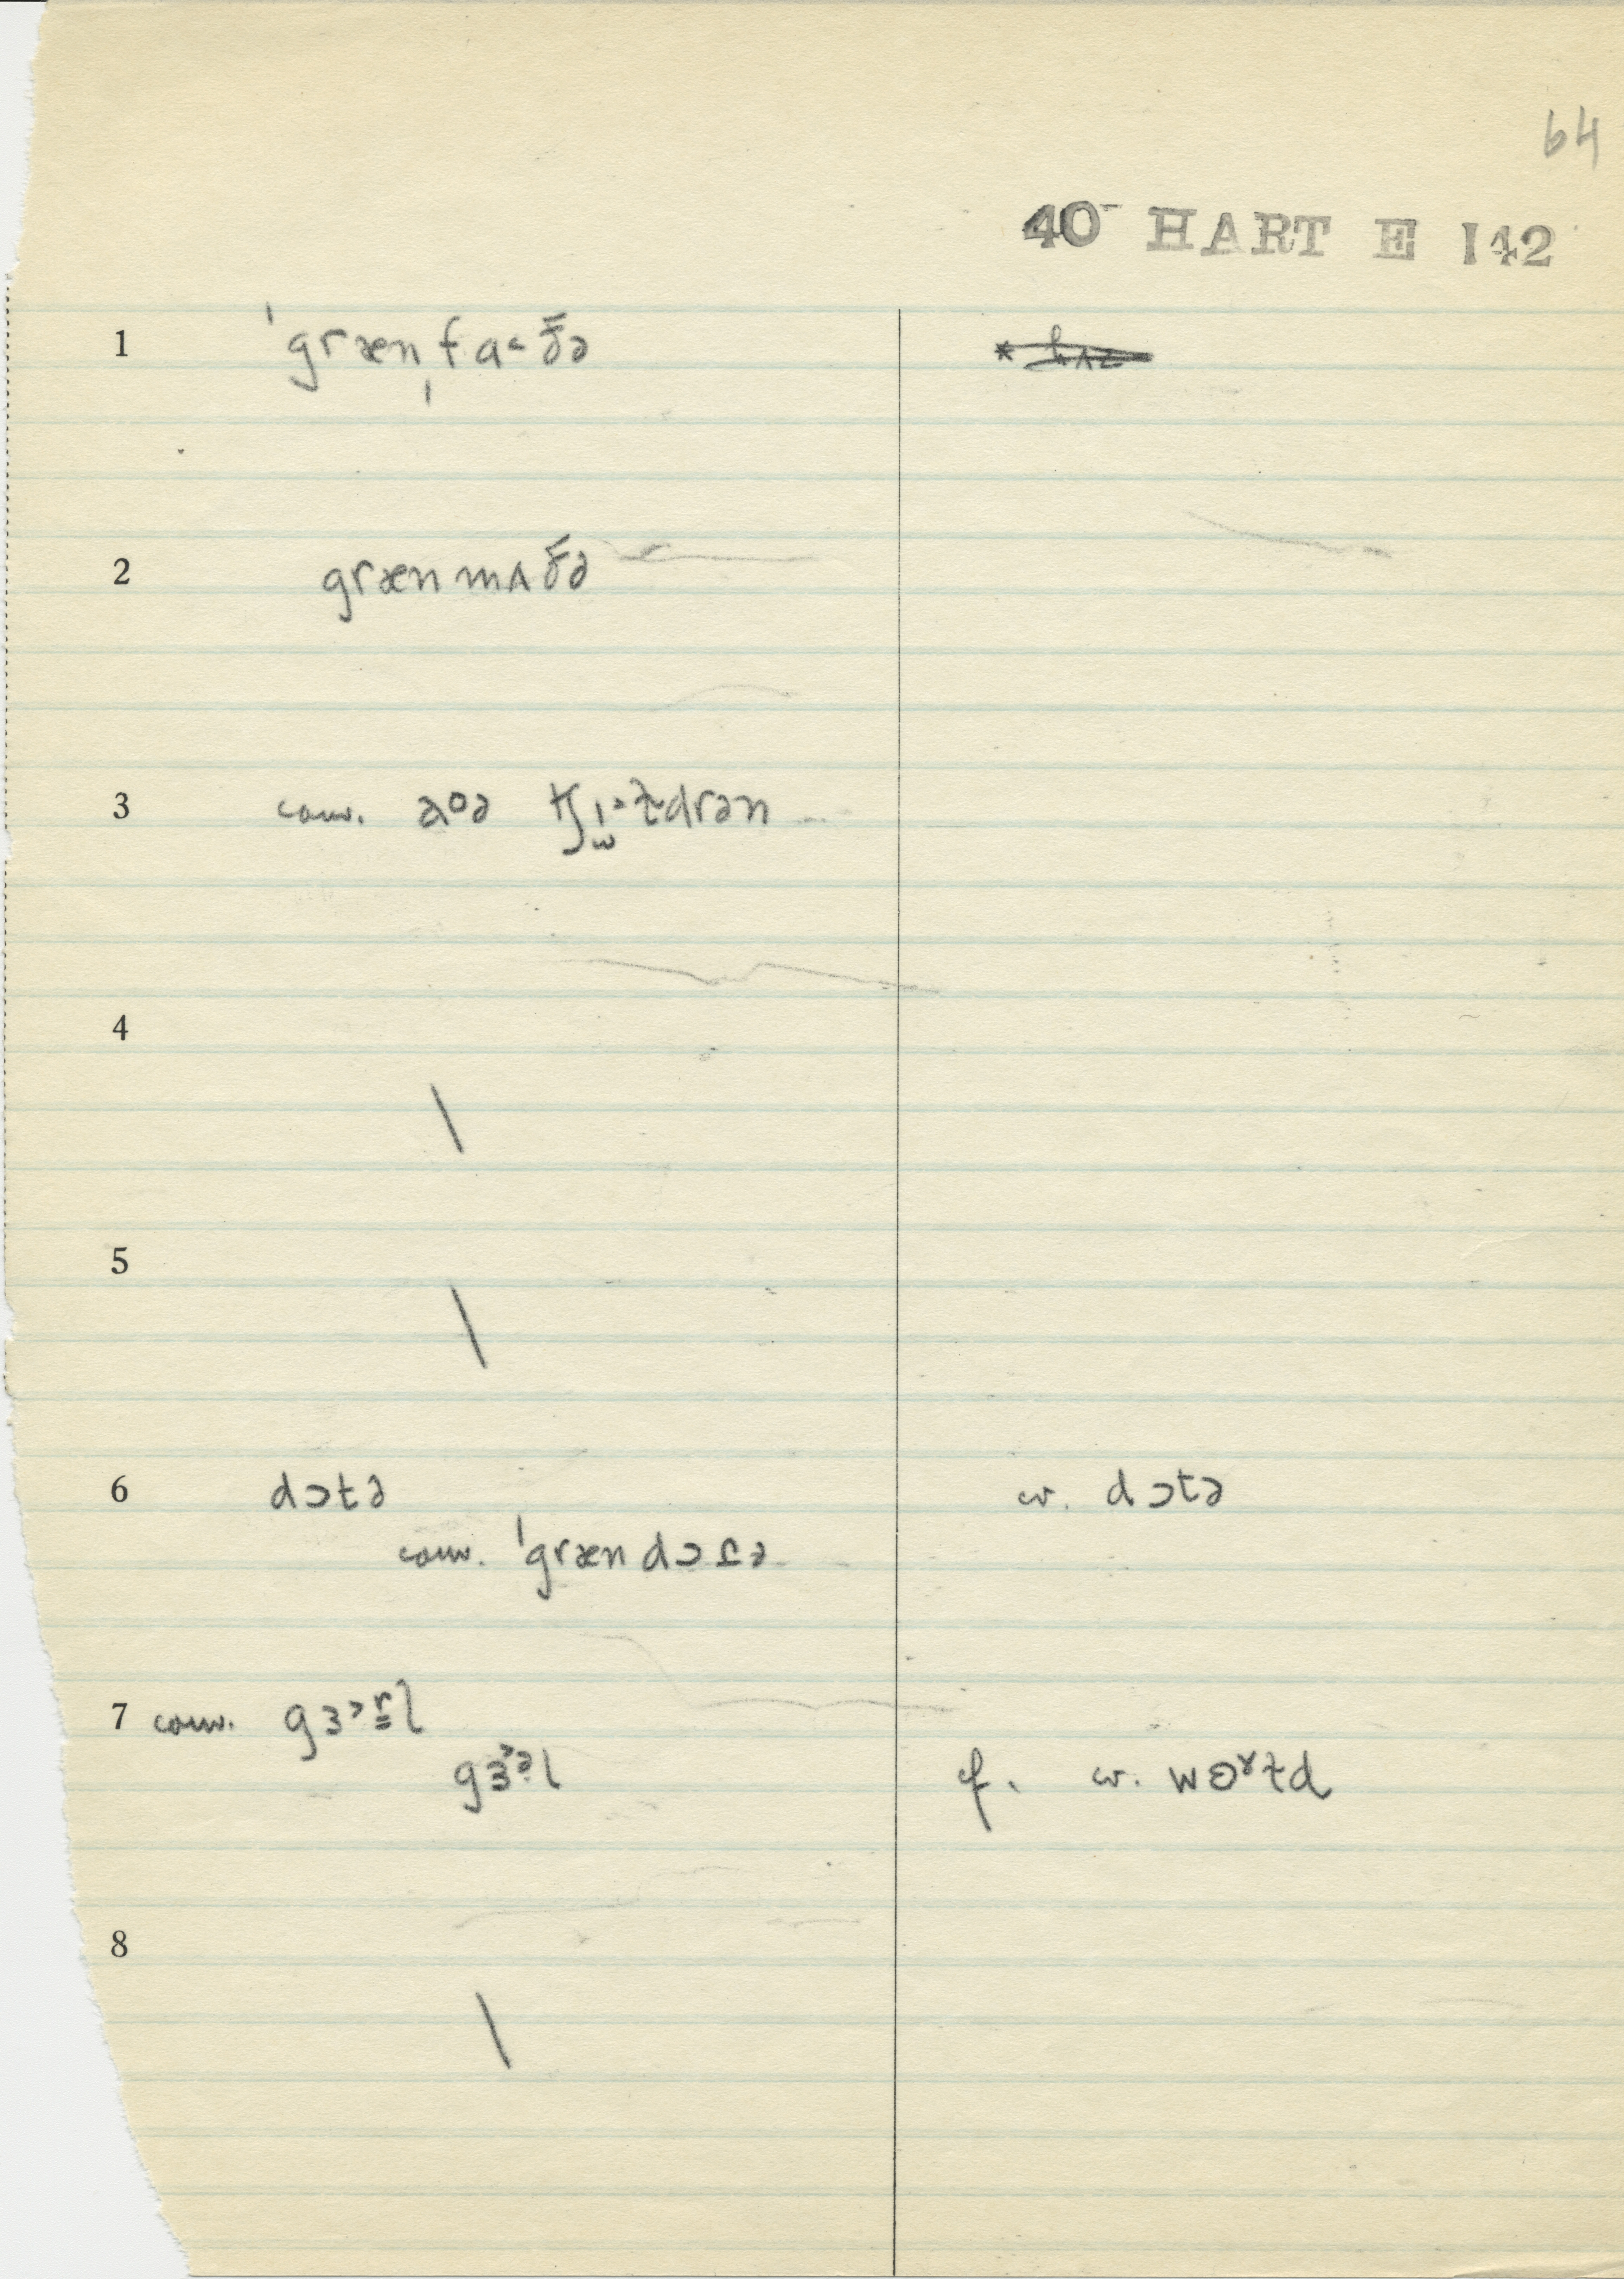 64
40 HART E 142
1 ˈgrænˌfa˂ðə
2 grænmʌðə
3 conv. aʊə
4
5
6 dɔtə w. dɔtə
conv. ˈgrændɔɾə
7 conv. gɜ˃rl
gɜ˃əl cf. w. wɵɤɫd
8